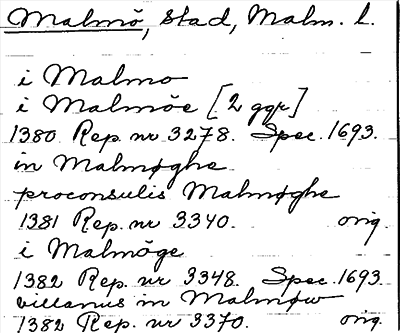 Malmö, stad, Malm. l.
i Malmo
i Malmöe [2 ggr]
1380 Rep. nr 3278. Spec. 1693.
in Malmøghe
proconsulis Malmøghe
1381 Rep. nr 3340. orig
i Malmöge
1382 Rep. nr 3348. Spec. 1693
villanus in Malmøw
1382 Rep. nr 3370. orig.